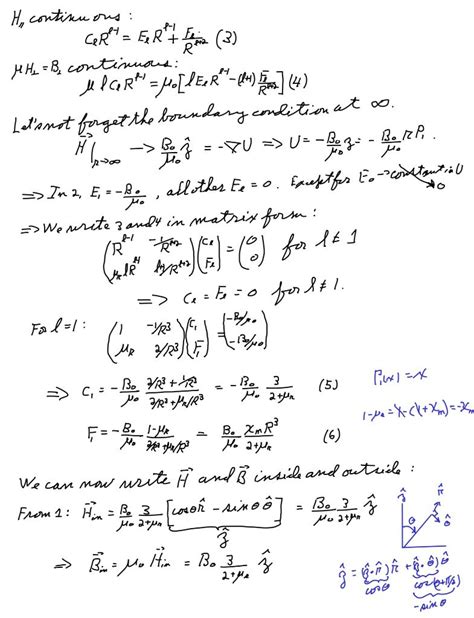 H_{||} continuous:
C_ℓ R^{ℓ-1} = E_ℓ R^{ℓ-1} + F_ℓ/R^{ℓ+2} (3)
μH_⊥ = B_⊥ continuous:
μ ℓ C_ℓ R^{ℓ-1} = μ_0 [ℓ E_ℓ R^{ℓ-1} - (ℓ+1) F_ℓ/R^{ℓ+2}] (4)
Let's not forget the boundary condition at ∞.
H⃗|_{r→∞} → B_0/μ_0 ẑ = -∇U ⇒ U = -B_0/μ_0 z = -B_0/μ_0 r P_1
⇒ In 2, E_1 = -B_0/μ_0, all other E_ℓ = 0. Except for E_0 → constant in U → 0
⇒ We write 3 and 4 in matrix form:
(R^{ℓ-1} -1/R^{ℓ+2} ; μ_r ℓ R^{ℓ-1} (ℓ+1)/R^{ℓ+2}) (C_ℓ ; F_ℓ) = (0 ; 0) for ℓ ≠ 1
⇒ C_ℓ = F_ℓ = 0 for ℓ ≠ 1.
For ℓ=1: (1 -1/R^3 ; μ_R 2/R^3) (C_1 ; F_1) = (-B_0/μ_0 ; -B_0/μ_0)
⇒ C_1 = -B_0/μ_0 (2/R^3 + 1/R^3)/(2/R^3 + μ_r/R^3) = -B_0/μ_0 3/(2+μ_r) (5)
P_1(x) = x
F_1 = -B_0/μ_0 (1-μ_r)/(2/R^3 + μ_r/R^3) = B_0/μ_0 χ_m R^3/(2+μ_r) (6)
1-μ_r = 1-(1+χ_m) = -χ_m
We can now write H⃗ and B⃗ inside and outside:
From 1: H⃗_in = B_0/μ_0 3/(2+μ_r) [cosθ r̂ - sinθ θ̂] = B_0/μ_0 3/(2+μ_r) ẑ
ẑ
⇒ B⃗_in = μ_0 H⃗_in = B_0 3/(2+μ_r) ẑ
ẑ r̂
θ θ̂
ẑ = (ẑ·r̂) r̂ + (ẑ·θ̂) θ̂
cosθ cos(θ+π/2)
-sinθ